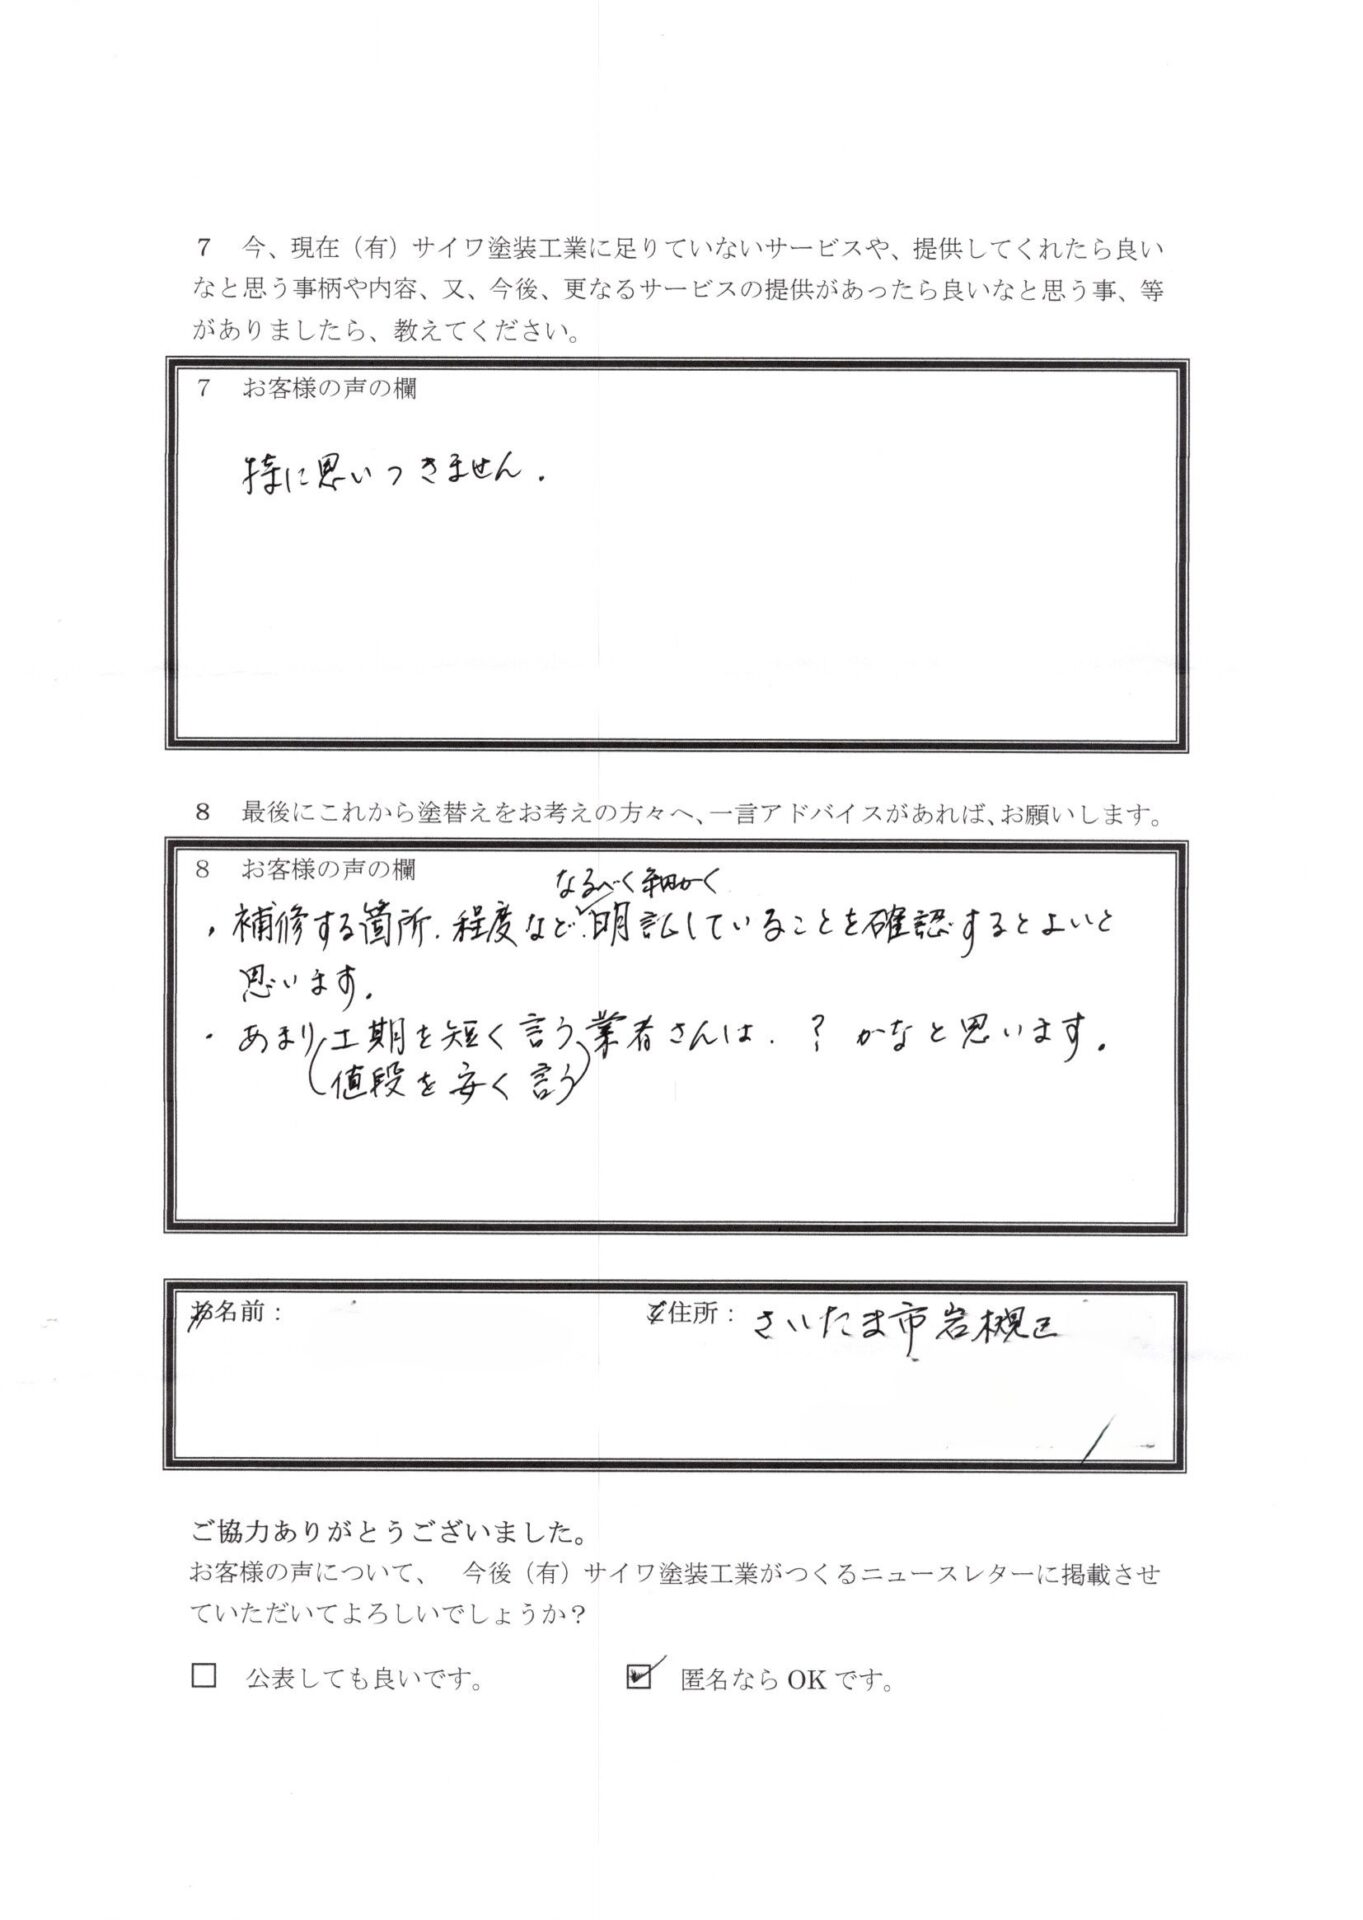 ７　今、現在（有）サイワ塗装工業に足りていないサービスや、提供してくれたら良い
なと思う事柄や内容、又、今後、更なるサービスの提供があったら良いなと思う事、等
がありましたら、教えてください。
７　お客様の声の欄
特に思いつきません.
８　最後にこれから塗替えをお考えの方々へ、一言アドバイスがあれば、お願いします。
８　お客様の声の欄
なるべく細かく
・補修する箇所、程度など、明記していることを確認するとよいと
思います。
・あまり工期を短く言う業者さんは、？かなと思います。
(値段を安く言う)
お名前：
ご住所：さいたま市岩槻区
ご協力ありがとうございました。
お客様の声について、　今後（有）サイワ塗装工業がつくるニュースレターに掲載させ
ていただいてよろしいでしょうか？
□　公表しても良いです。
☑　匿名なら OK です。